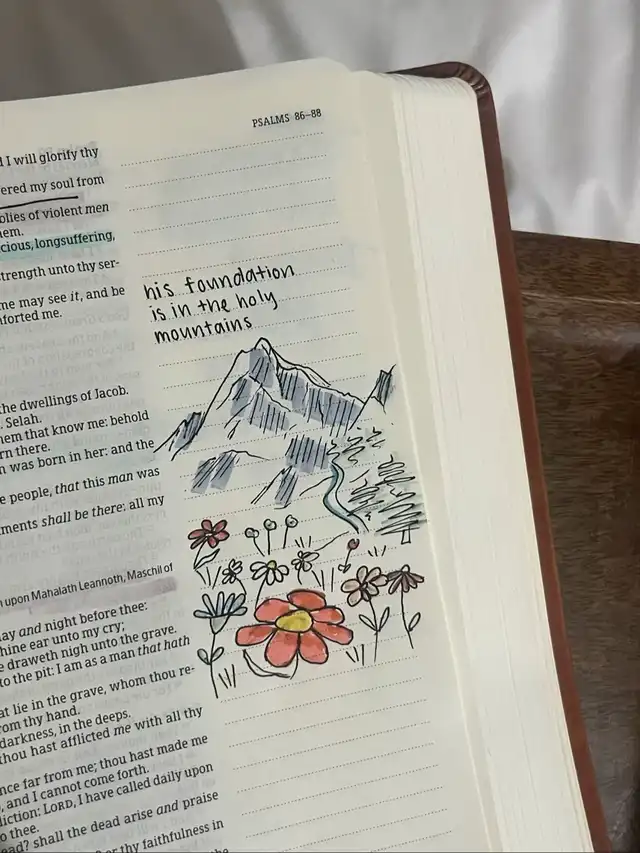 PSALMS 86–88
I will glorify thy
my soul from
of violent men
longsuffering,
strength unto thy ser-
me may see it, and be
me.
his foundation
is in the holy
mountains
the dwellings of Jacob.
Selah.
them that know me: behold
there.
was born in her: and the
people, that this man was
shall be there: all my
upon Mahalath Leannoth, Maschil of
and night before thee:
ear unto my cry;
draweth nigh unto the grave.
to the pit: I am as a man that hath
lie in the grave, whom thou re-
thy hand.
darkness, in the deeps.
thou hast afflicted me with all thy
far from me; thou hast made me
and I cannot come forth.
LORD, I have called daily upon
thee.
shall the dead arise and praise
thy faithfulness in